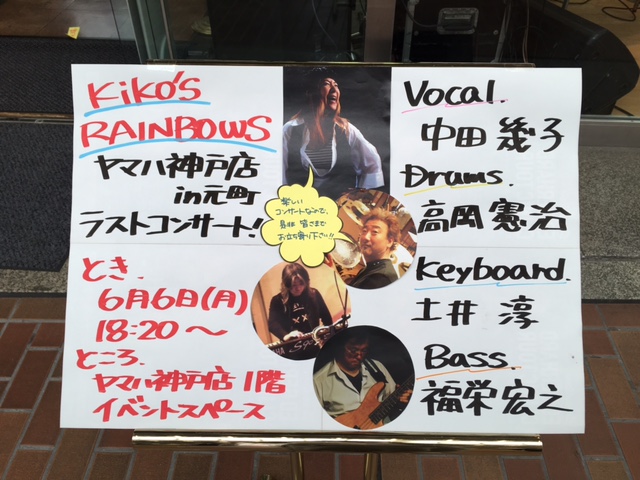 Kiko's
RAINBOWS
ヤマハ神戸店
in元町
ラストコンサート!
とき.
6月6日(月)
18:20~
ところ.
ヤマハ神戸店1階
イベントスペース
楽しい
コンサートなので、
是非 皆さまで
お立ち寄り下さい!!
Vocal.
中田 幾子
Drums.
高岡 憲治
Keyboard.
土井 淳
Bass.
福栄 宏之